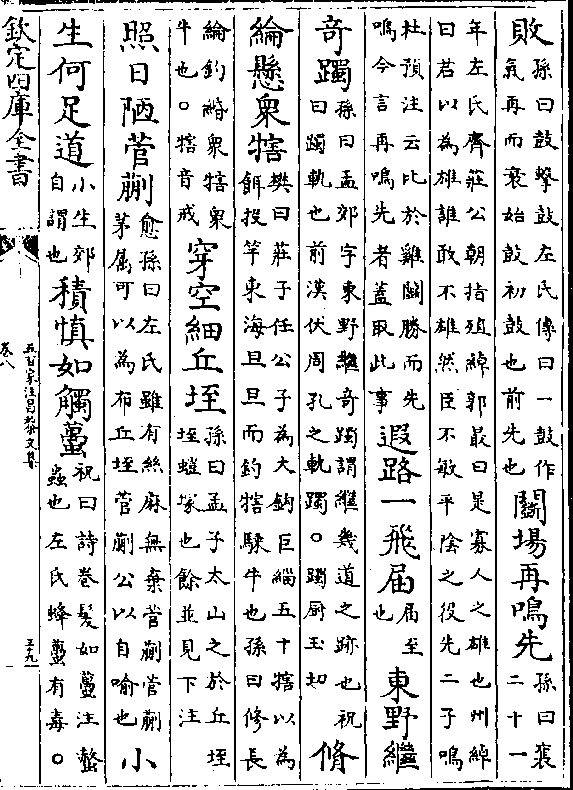 敗
孫曰鼓擊鼓左氏傳曰一鼓作
氣再而衰始鼓初鼓也前先也
鬭場再鳴先
孫曰襄
二十一
年左氏齊莊公朝指殖綽郭最曰是寡人之雄也州綽
曰君以為雄誰敢不雄然臣不敏平陰之役先二子鳴
杜預注云比於雞鬭勝而先
鳴今言再鳴先者蓋取此事
遐路一飛屆
屆至
也
東野繼
奇躅
孫曰孟郊字東野繼奇躅謂繼幾道之跡也祝
曰躅軌也前漢伏周孔之軌躅。躅厨玉切
脩
綸懸衆犗
樊曰莊子任公子為大鈎巨緇五十犗以為
餌投竿東海旦旦而釣犗騬牛也孫曰修長
綸釣緡衆犗衆
牛也。犗音戒
穿空細丘垤
孫曰孟子太山之於丘垤
垤螘塚也餘並見下注
照日陋菅蒯
愈孫曰左氏雖有絲麻無棄菅蒯菅蒯
茅屬可以為布丘垤菅蒯公以自喻也
小
生何足道
小生郊
自謂也
積慎如觸蠆
祝曰詩卷髮如蠆注螫
蟲也左氏蜂蠆有毒。
欽定四庫全書
五百家注昌黎文集
卷八
五十九